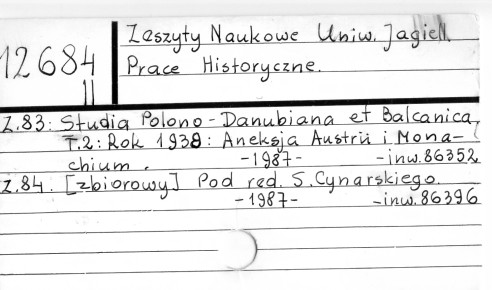 12684
II
Zeszyty Naukowe Uniw. Jagiell.
Prace Historyczne.
Z.83: Studia Polono-Danubiana et Balcanica.
T.2: Rok 1938: Aneksja Austrii i Mona-
chium. -1987- -inw.86352
Z.84: [zbiorowy] Pod red. S.Cynarskiego.
-1987- -inw.86396